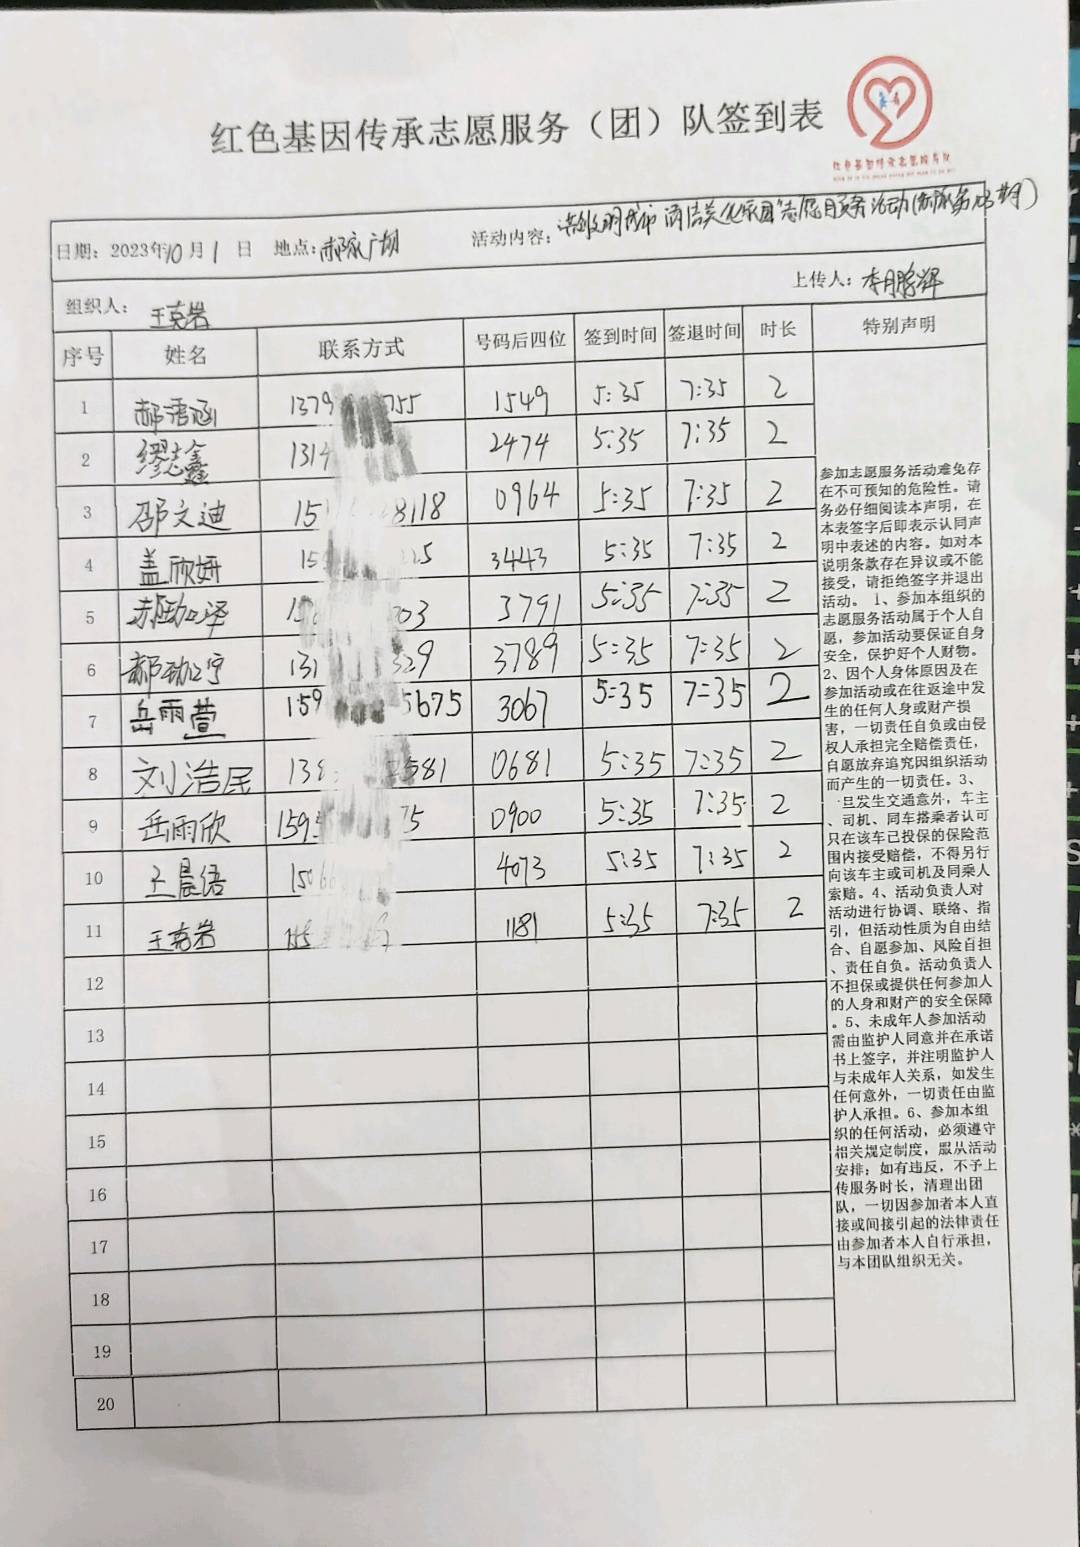 红色基因传承志愿服务（团）队签到表
日期：2023年10月1日 地点：郝家广场 活动内容：
组织人：王克岩 上传人：李鹏辉
序号 姓名 联系方式 号码后四位 签到时间 签退时间 时长 特别声明
1 1379 755 1549 5:35 7:35 2
2 缪志鑫 1314 2474 5:35 7:35 2
3 邵文迪 15 8118 0964 5:35 7:35 2
4 盖欣妍 15 3443 5:35 7:35 2
5 3791 5:35 7:35 2
6 131 329 3789 5:35 7:35 2
7 岳雨萱 159 5675 3067 5:35 7:35 2
8 刘浩民 138 581 0681 5:35 7:35 2
9 岳雨欣 1595 75 0900 5:35 7:35 2
10 王晨语 150 4073 5:35 7:35 2
11 王克岩 1181 5:35 7:35 2
12
13
14
15
16
17
18
19
20
参加志愿服务活动难免存
在不可预知的危险性。请
务必仔细阅读本声明，在
本表签字后即表示认同声
明中表述的内容。如对本
说明条款存在异议或不能
接受，请拒绝签字并退出
活动。1、参加本组织的
志愿服务活动属于个人自
愿，参加活动要保证自身
安全，保护好个人财物。
2、因个人身体原因及在
参加活动或在往返途中发
生的任何人身或财产损
害，一切责任自负或由侵
权人承担完全赔偿责任，
自愿放弃追究因组织活动
而产生的一切责任。3、
旦发生交通意外，车主
、司机、同车搭乘者认可
只在该车已投保的保险范
围内接受赔偿，不得另行
向该车主或司机及同乘人
索赔。4、活动负责人对
活动进行协调、联络、指
引，但活动性质为自由结
合、自愿参加、风险自担
、责任自负。活动负责人
不担保或提供任何参加人
的人身和财产的安全保障
。5、未成年人参加活动
需由监护人同意并在承诺
书上签字，并注明监护人
与未成年人关系，如发生
任何意外，一切责任由监
护人承担。6、参加本组
织的任何活动，必须遵守
相关规定制度，服从活动
安排；如有违反，不予上
传服务时长，清理出团
队，一切因参加者本人直
接或间接引起的法律责任
由参加者本人自行承担，
与本团队组织无关。